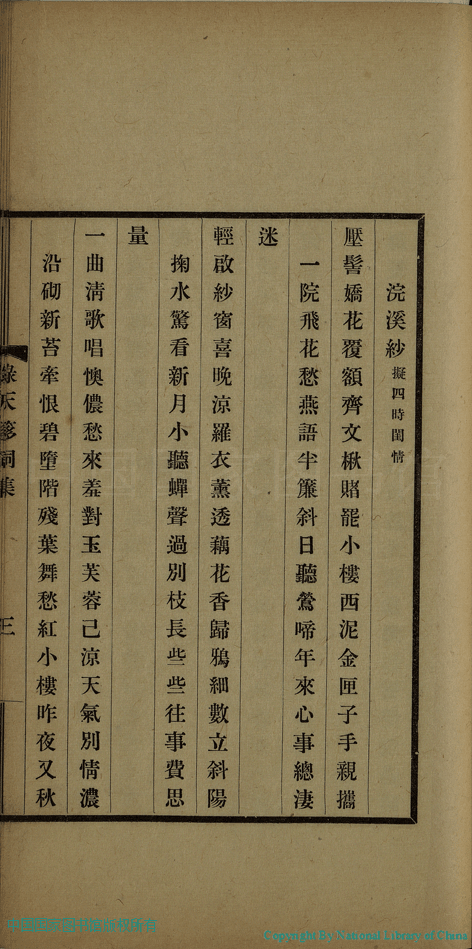 浣溪紗 擬四時閨情
壓髻嬌花覆額齊文楸賭罷小樓西泥金匣子手親攜
一院飛花愁燕語半簾斜日聽鶯啼年來心事總淒
迷
輕啟紗窗喜晚涼羅衣薰透藕花香歸鴉細數立斜陽
掬水驚看新月小聽蟬聲過別枝長些些往事費思
量
一曲清歌唱懊儂愁來羞對玉芙蓉已涼天氣別情濃
沿砌新苔牽恨碧墮階殘葉舞愁紅小樓昨夜又秋
天 詞集
三
Copyright By National Library of China